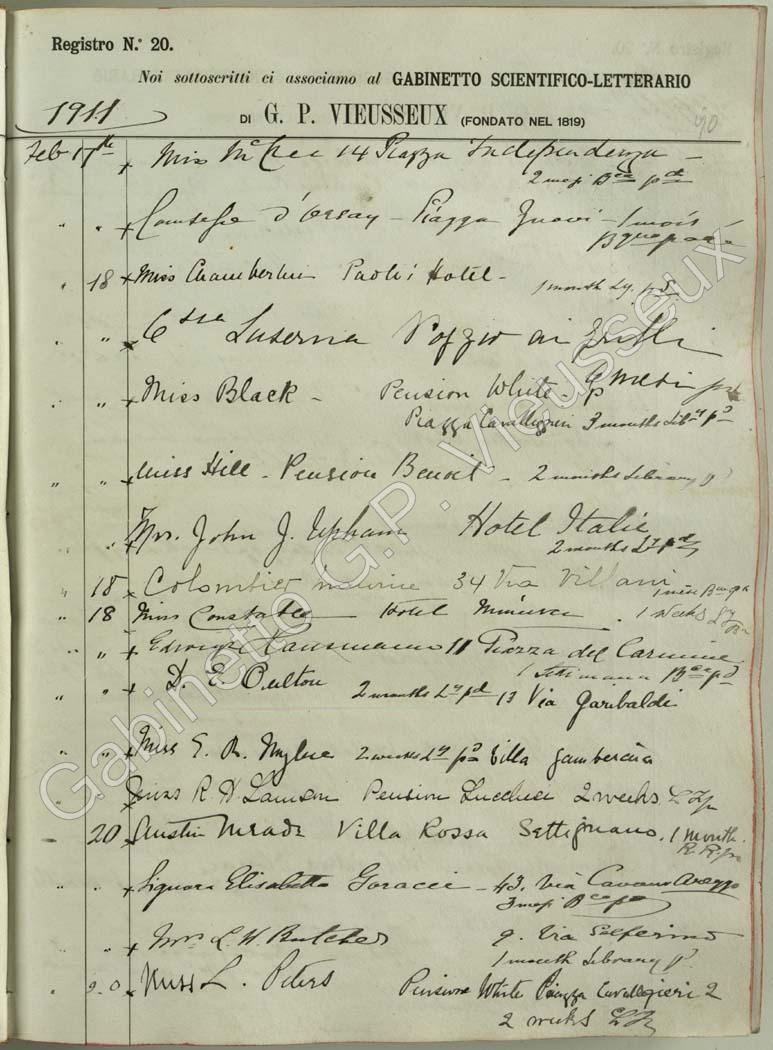 Registro N.° 20.
Noi sottoscritti ci associamo al GABINETTO SCIENTIFICO-LETTERARIO
1911
DI G. P. VIEUSSEUX (FONDATO NEL 1819)
90
Feb 17th x Miss McCree 14 Piazza Independenza -
2 mesi Bca pd
" " x Comtesse d'Orsay - Piazza Giudici - 1 mois
" 18 x Miss Chamberlin Paoli Hotel -
1 month Ly. pd.
" " x Ctssa Luserna Poggio ai Grilli
" " x Miss Black - Pension White -
Piazza Cavalleggieri 3 months Liby pd
" " x Miss Hill - Pension Benoit - 2 months Library p
" x Mrs. John J. Upham Hotel Italie
2 months Ly pd
" 18 34 Via Villani
" 18 Miss Constable Hotel Minerva . 1 weeks Ly
" " x 11 Piazza del Carmine
1 settimana Bca pd
" " x D. E. Oulton 2 months Ly pd 13 Via Garibaldi
" " x Miss 2 weeks Ly pd Villa Gamberaia
Miss R. H. Lamson Pension Lucchesi 2 weeks
20 Austin Meade Villa Rossa Settignano. 1 month.
" " x Signora Elisabetta Goracci - 43. Via Cavour Arezzo
3 mesi Bca pd
" x Mrs L. W. Butcher 9. Via Solferino
1 month Library p.
" 20 x Miss L. Peters Pensione White Piazza Cavalegieri 2
2 weeks
Gabinetto G.P. Vieusseux